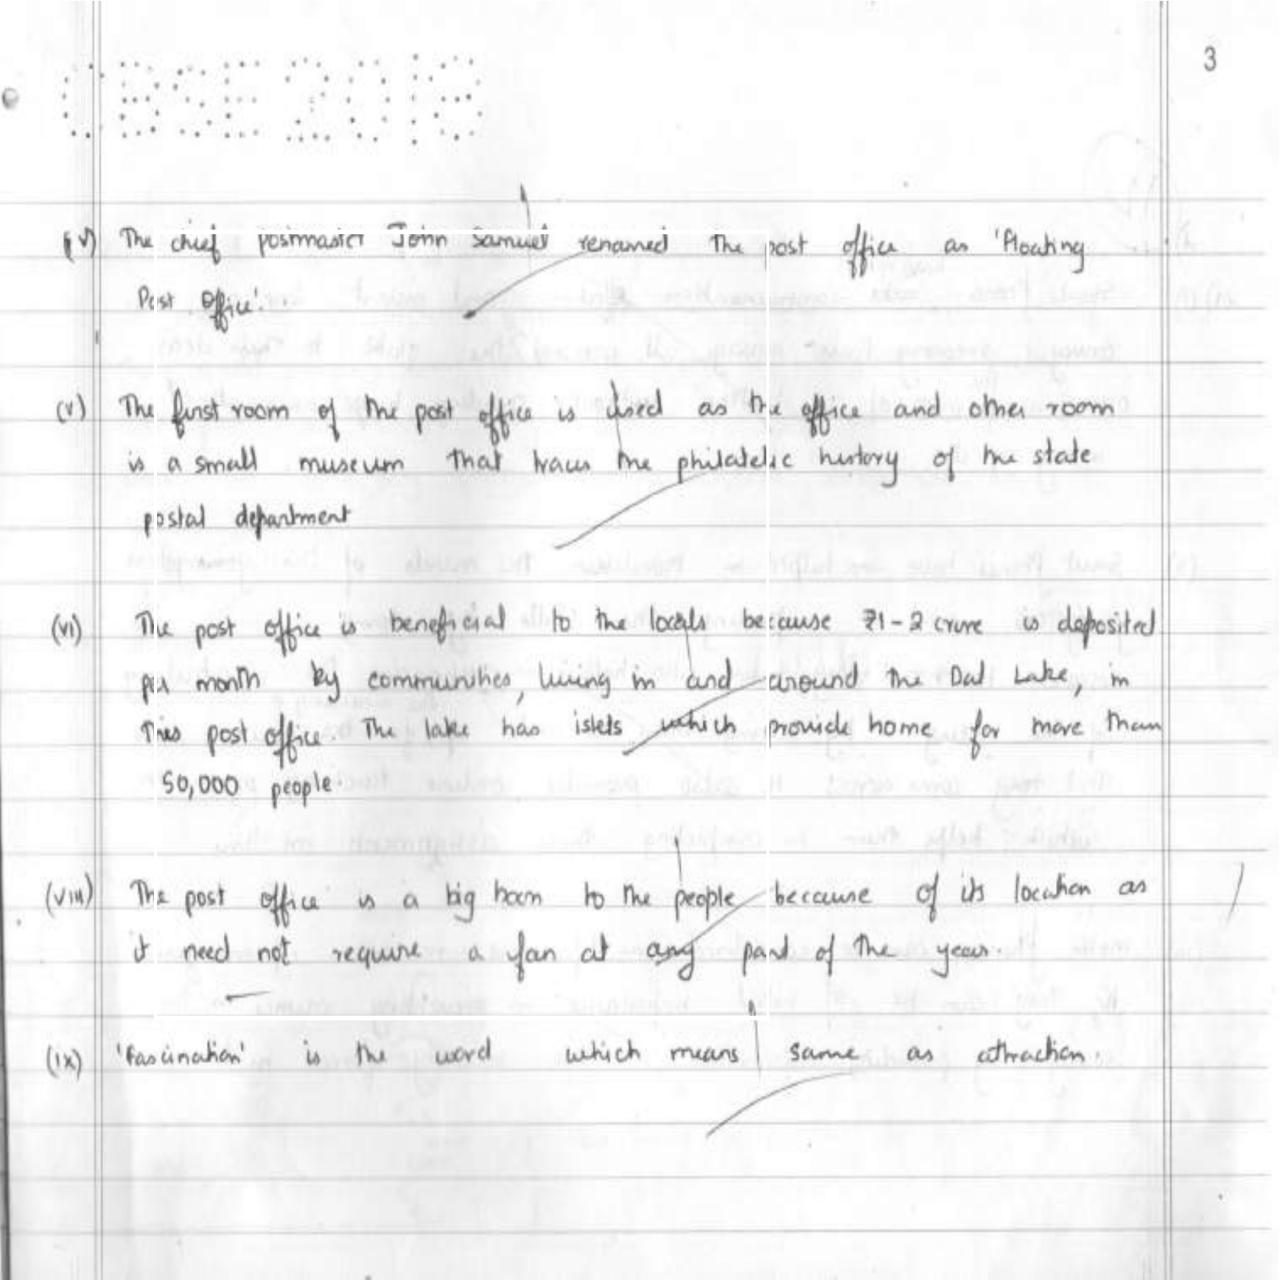 CBSE 2018
3
(iv) The chief postmaster John Samuel renamed the post office as 'Floating
Post Office'.
(v) The first room of the post office is used as the office and other room
is a small museum that traces the philatelic history of the state
postal department
(vi) The post office is beneficial to the locals because ₹1-2 crore is deposited
per month by communities, living in and around the Dal Lake, in
this post office. The lake has islets which provide home for more than
50,000 people.
(viii) The post office is a big boon to the people because of its location as
it need not require a fan at any part of the year.
(ix) 'Fascination' is the word which means same as attraction.